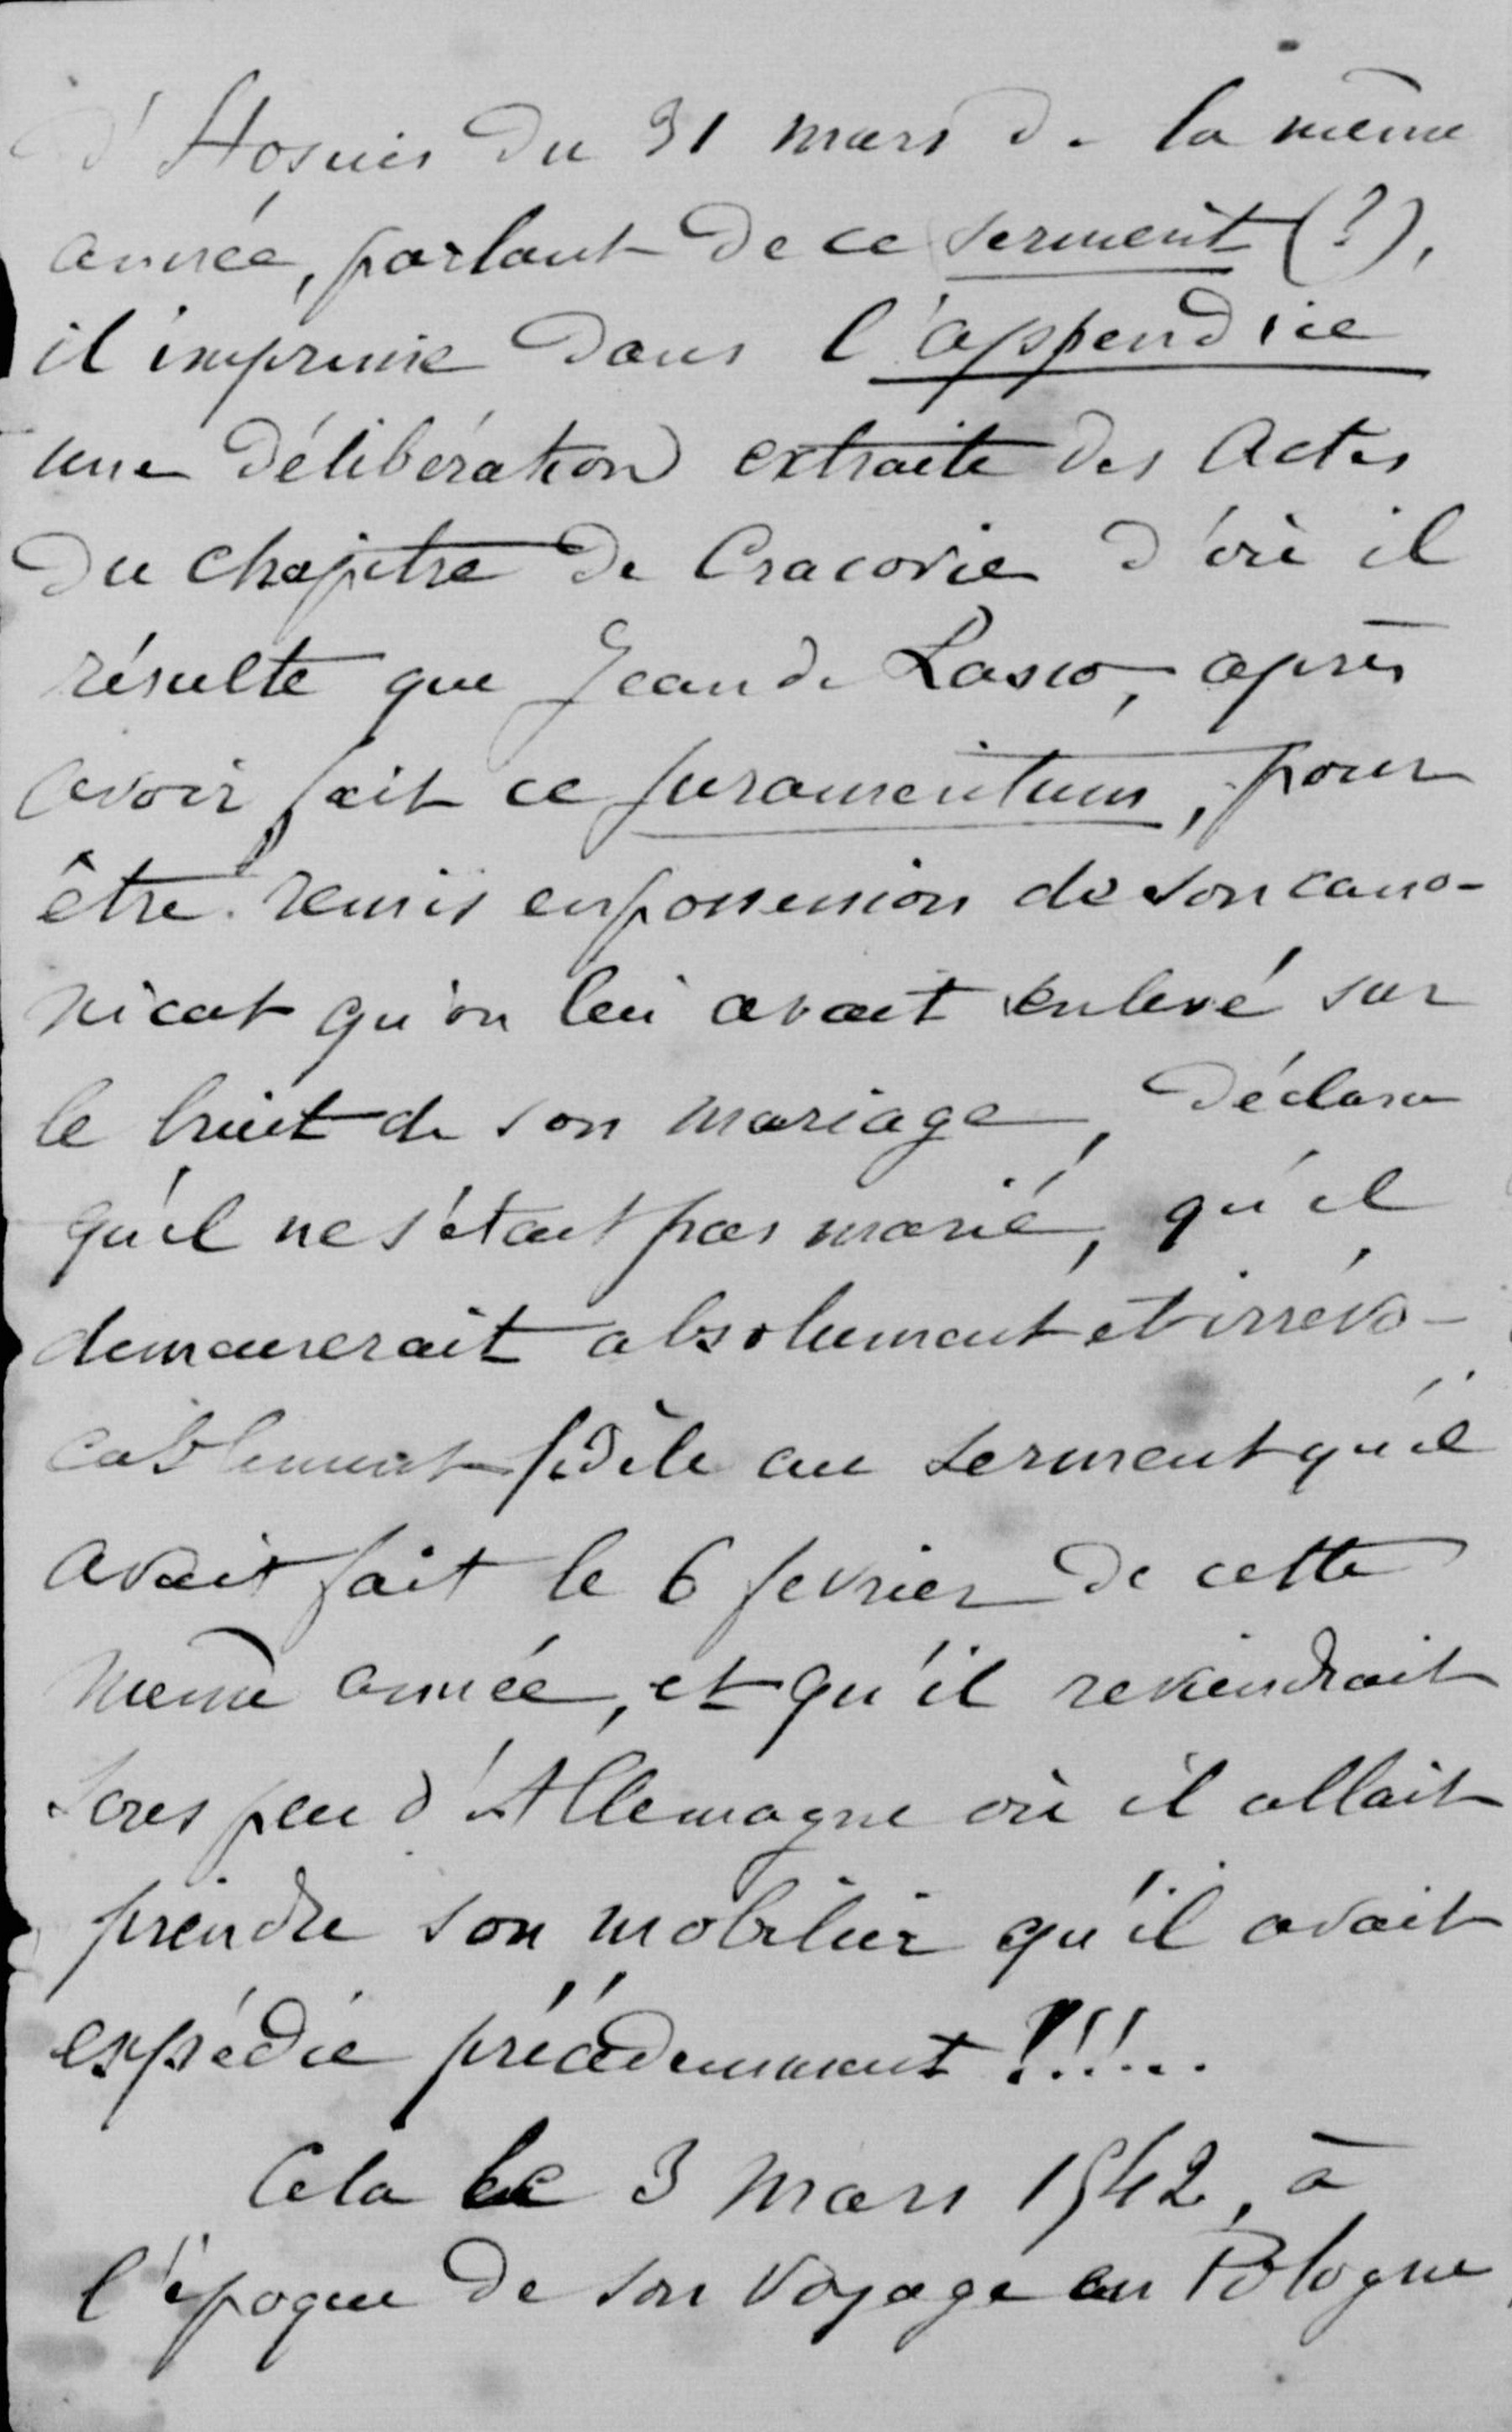 d'Hosius du 31 mars de la même
année, parlant de ce serment (?),
il imprime dans l'appendice
une délibération extraite des Actes
du chapitre de Cracovie d'où il
résulte que Jean de Lasco, après
avoir fait ce juramentum, pour
être remis en possession de son cano-
nicat qu'on lui avait enlevé sur
le bruit de son mariage, déclara
qu'il ne s'était pas marié, qu'il
demeurerait absolument et irrévo-
cablement fidèle au serment qu'il
avait fait le 6 fevrier de cette
même année, et qu'il reviendrait
sous peu d'Allemagne où il allait
prendre son mobilier qu'il avait
expédié précédemment !!!...
Cela le 3 mars 1542, à
l'époque de son voyage en Pologne,